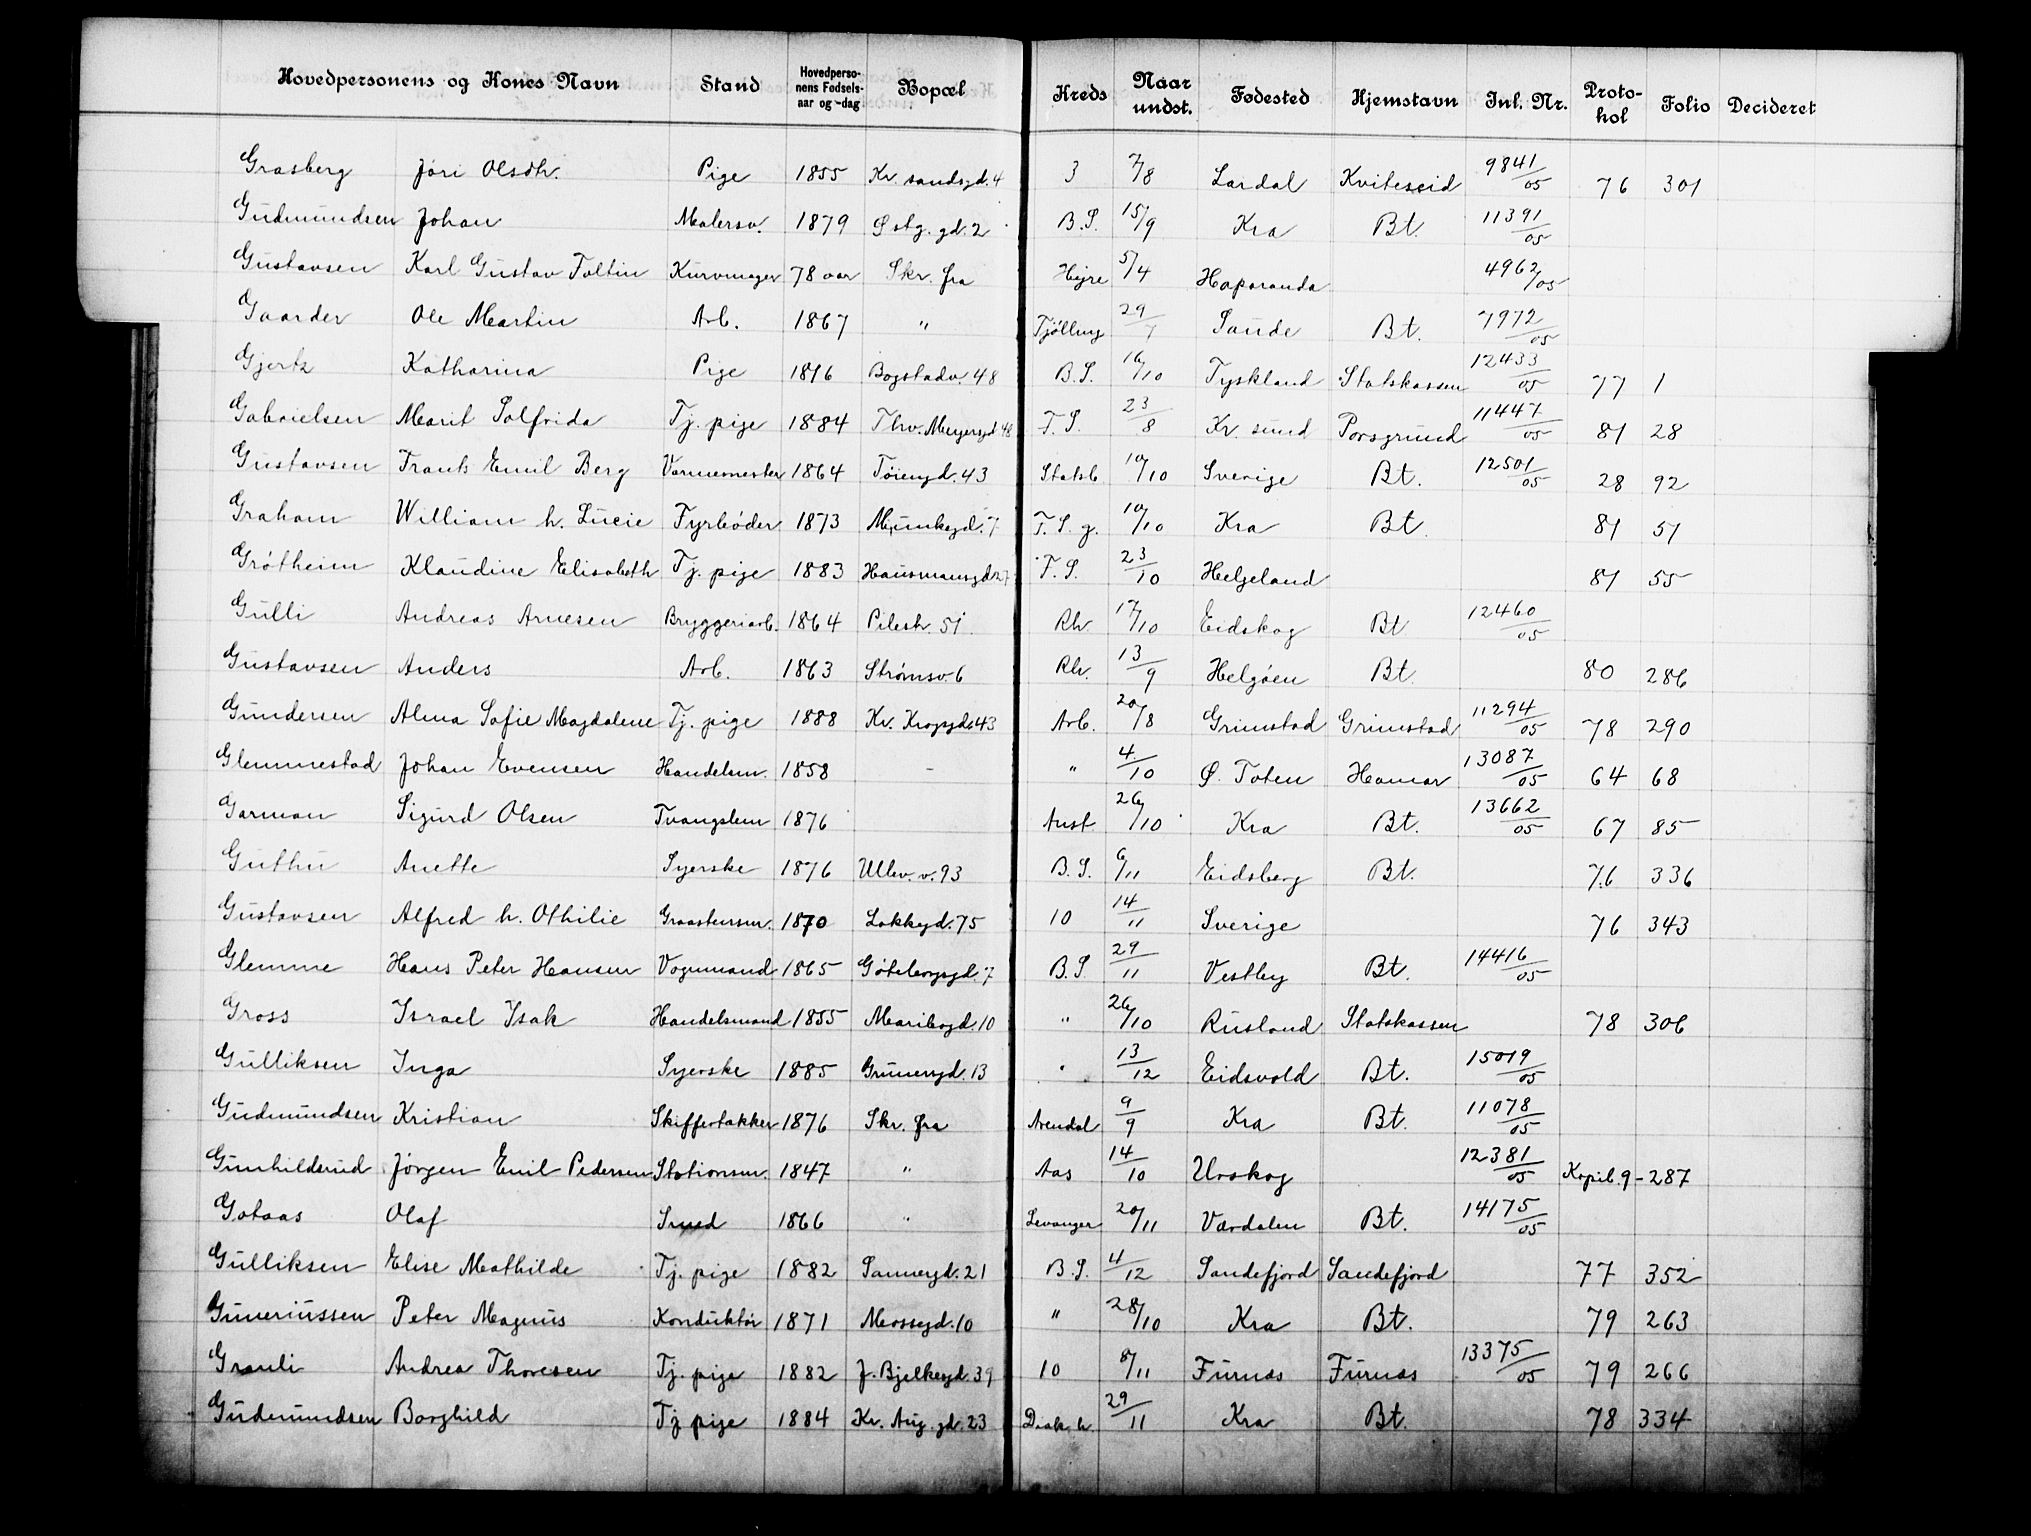 Hovedpersonens og Kones Navn | Stand | Hovedpersonens Fødselsaar og -dag | Bopæl | Kreds | Naar undst. | Fødested | Hjemstavn | Inl. Nr. | Protokol | Folio | Decideret
Grasberg Jøri Olsdtr. Pige 1855 Kr. sandsgd. 4 3 7/8 Lardal Kviteseid 9841/05 76 301
Gudmundsen Johan Malersv. 1879 Østg. gd. 2 B.S. 15/9 Kra Bt. 11391/05
Gustavsen Karl Gustav Toltin Kurvmager 78 aar Skr. fra Hijre 5/4 Haparanda 4962/05
Gaarder Ole Martin Arb. 1867 " Tjølling 29/7 Sande Bt. 7972/05
Gjertz Katharina Pige 1876 Bogstadv. 48 B.S. 16/10 Tyskland Statskassen 12433/05 77 1
Gabrielsen Marit Solfrida Tj. pige 1884 Thv. Meyersgd 48 F.S. 23/8 Kr. sund Porsgrund 11447/05 81 28
Gustavsen Frants Emil Berg Varmemester 1864 Tøiengd. 43 Statsb 10/10 Sverige Bt. 12501/05 28 92
Graham William h. Lucie Fyrbøder 1873 Munkegd. 7 F.S. g. 10/10 Kra Bt. 81 51
Grøtheim Klaudine Elisabeth Tj. pige 1883 Hausmansgd 27 F.S. 23/10 Helgeland 81 55
Gulli Andreas Arnesen Bryggeriarb. 1864 Pilestr. 51 Rh. 17/10 Eidskog Bt 12460/05
Gustavsen Anders Arb. 1863 Strømsv 6 Rh. 13/9 Helgøen Bt. 80 286
Gundersen Alma Sofie Magdalene Tj. pige 1888 Kr. Krogsgd 43 Arb. 20/8 Grimstad Grimstad 11294/05 78 290
Glemmestad Johan Evensen Handelsm. 1858 - " 4/10 Ø. Toten Hamar 13087/05 64 68
Garman Sigurd Olsen Tvangslem 1876 Anst. 26/10 Kra Bt. 13662/05 67 85
Guthu Anette Syerske 1876 Ullev. v. 93 B.S. 6/11 Eidsberg Bt. 76 336
Gustavsen Alfred h. Othilie Graastensm. 1870 Løkkegd. 75 10 14/11 Sverige 76 343
Glemme Hans Peter Hansen Vognmand 1865 Gøteborgsgd. 7 B.S. 29/11 Vestby Bt. 14416/05
Gross Israel Isak Handelsmand 1855 Maribogd. 10 " 26/10 Rusland Statskassen 78 306
Gulliksen Inga Syerske 1885 Grünersgd. 13 " 13/12 Eidsvold Bt. 15019/05
Gudmundsen Kristian Skiffertækker 1876 Skr. fra Arendal 9/9 Kra Bt. 11078/05
Gunhildsrud Jørgen Emil Pedersen Stationsm. 1847 " Aas 14/10 Urskog 12381/05 Kopib. 9 - 287
Gotaas Olaf Smed 1866 " Levanger 20/11 Værdalen Bt. 14175/05
Gulliksen Elise Mathilde Tj. pige 1882 Sannergd. 21 B.S. 4/12 Sandefjord Sandefjord 77 352
Guneriussen Peter Magnus Konduktør 1871 Mossegd. 10 " 28/10 Kra Bt. 79 263
Granli Andrea Thoresen Tj. pige 1882 J. Bjelkesgd. 39 10 8/11 Furnas Furnas 13375/05 79 266
Gudmundsen Borghild Tj pige 1884 Kr. Aug. gd. 23 Diak. h. 29/11 Kra Bt. 78 334